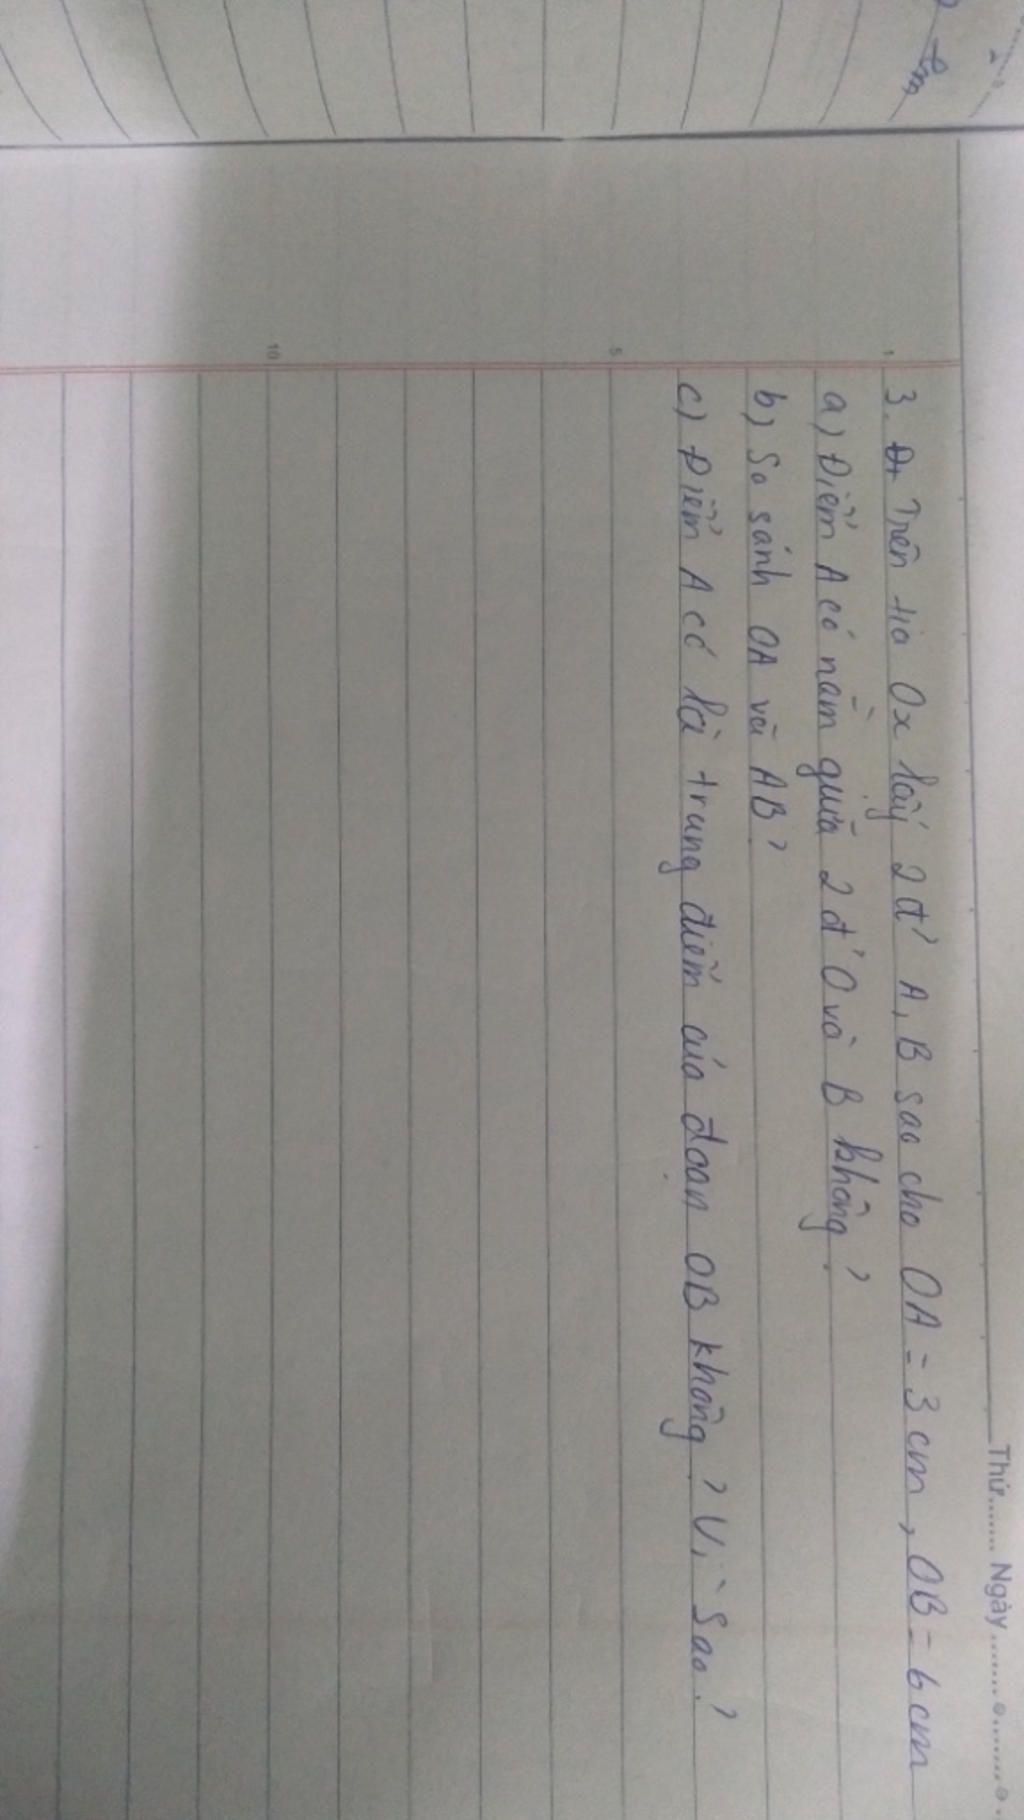 Thứ....... Ngày
3. Trên tia Ox lấy 2 đ' A, B sao cho OA = 3 cm, OB = 6 cm
1
a) Điểm A có nằm giữa 2 đ' O và B không?
b) So sánh OA và AB?
c) Điểm A có là trung điểm của đoạn OB không? Vì sao?
5
10